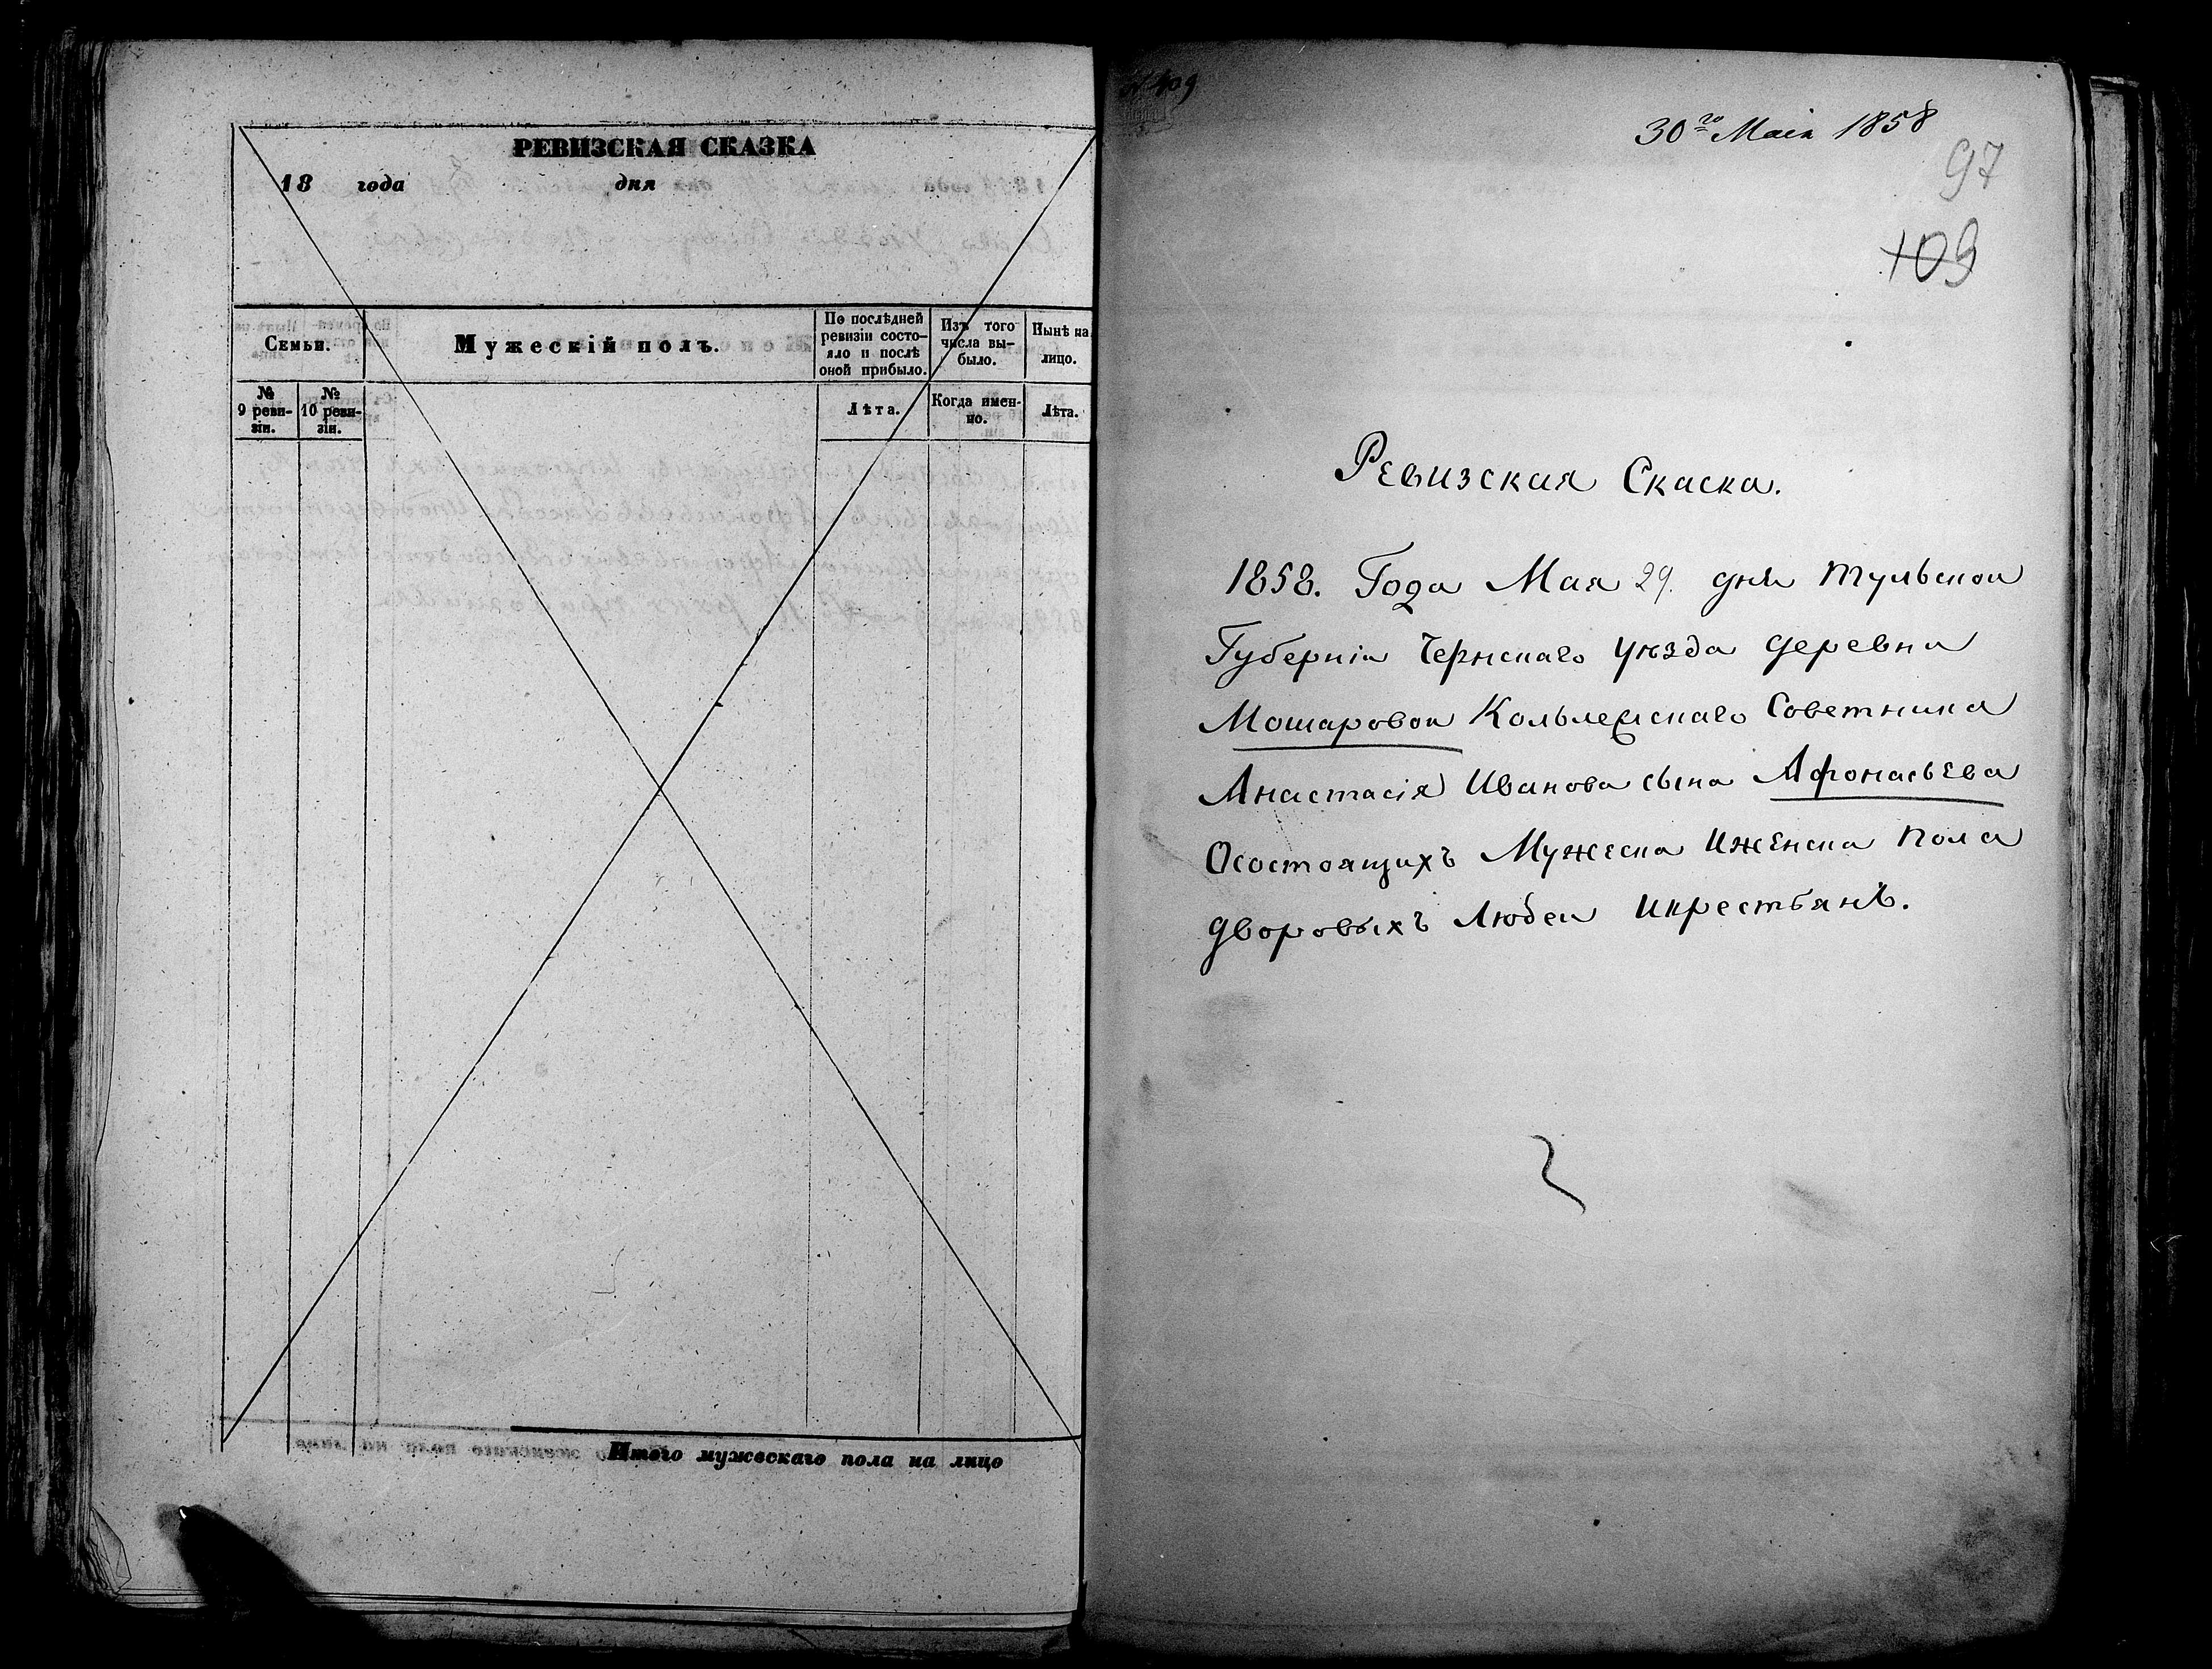 РЕВИЗСКАЯ СКАЗКА
18 года дня
Семьи.
Мужескій полъ.
По послѣдней
ревизіи состо-
яло и послѣ
оной прибыло.
Изъ того
числа вы-
было.
Нынѣ на
лицо.
№
9 реви-
зіи.
№
10 реви-
зіи.
Лѣта.
Когда имен-
но.
Лѣта.
Итого мужескаго пола на лицо
№ 109
30го Маія 1858
97
109
Ревизская Скаска.
1858. Года Мая 29. дня Тульской
Губерніи Чернскаго уѣзда деревни
Мошаровой Кольлежскаго Советника
Анастасія Иванова сына Афонасьева
Осостоящихъ Мужеска иженска пола
дворовыхъ Людей икрестьянъ.